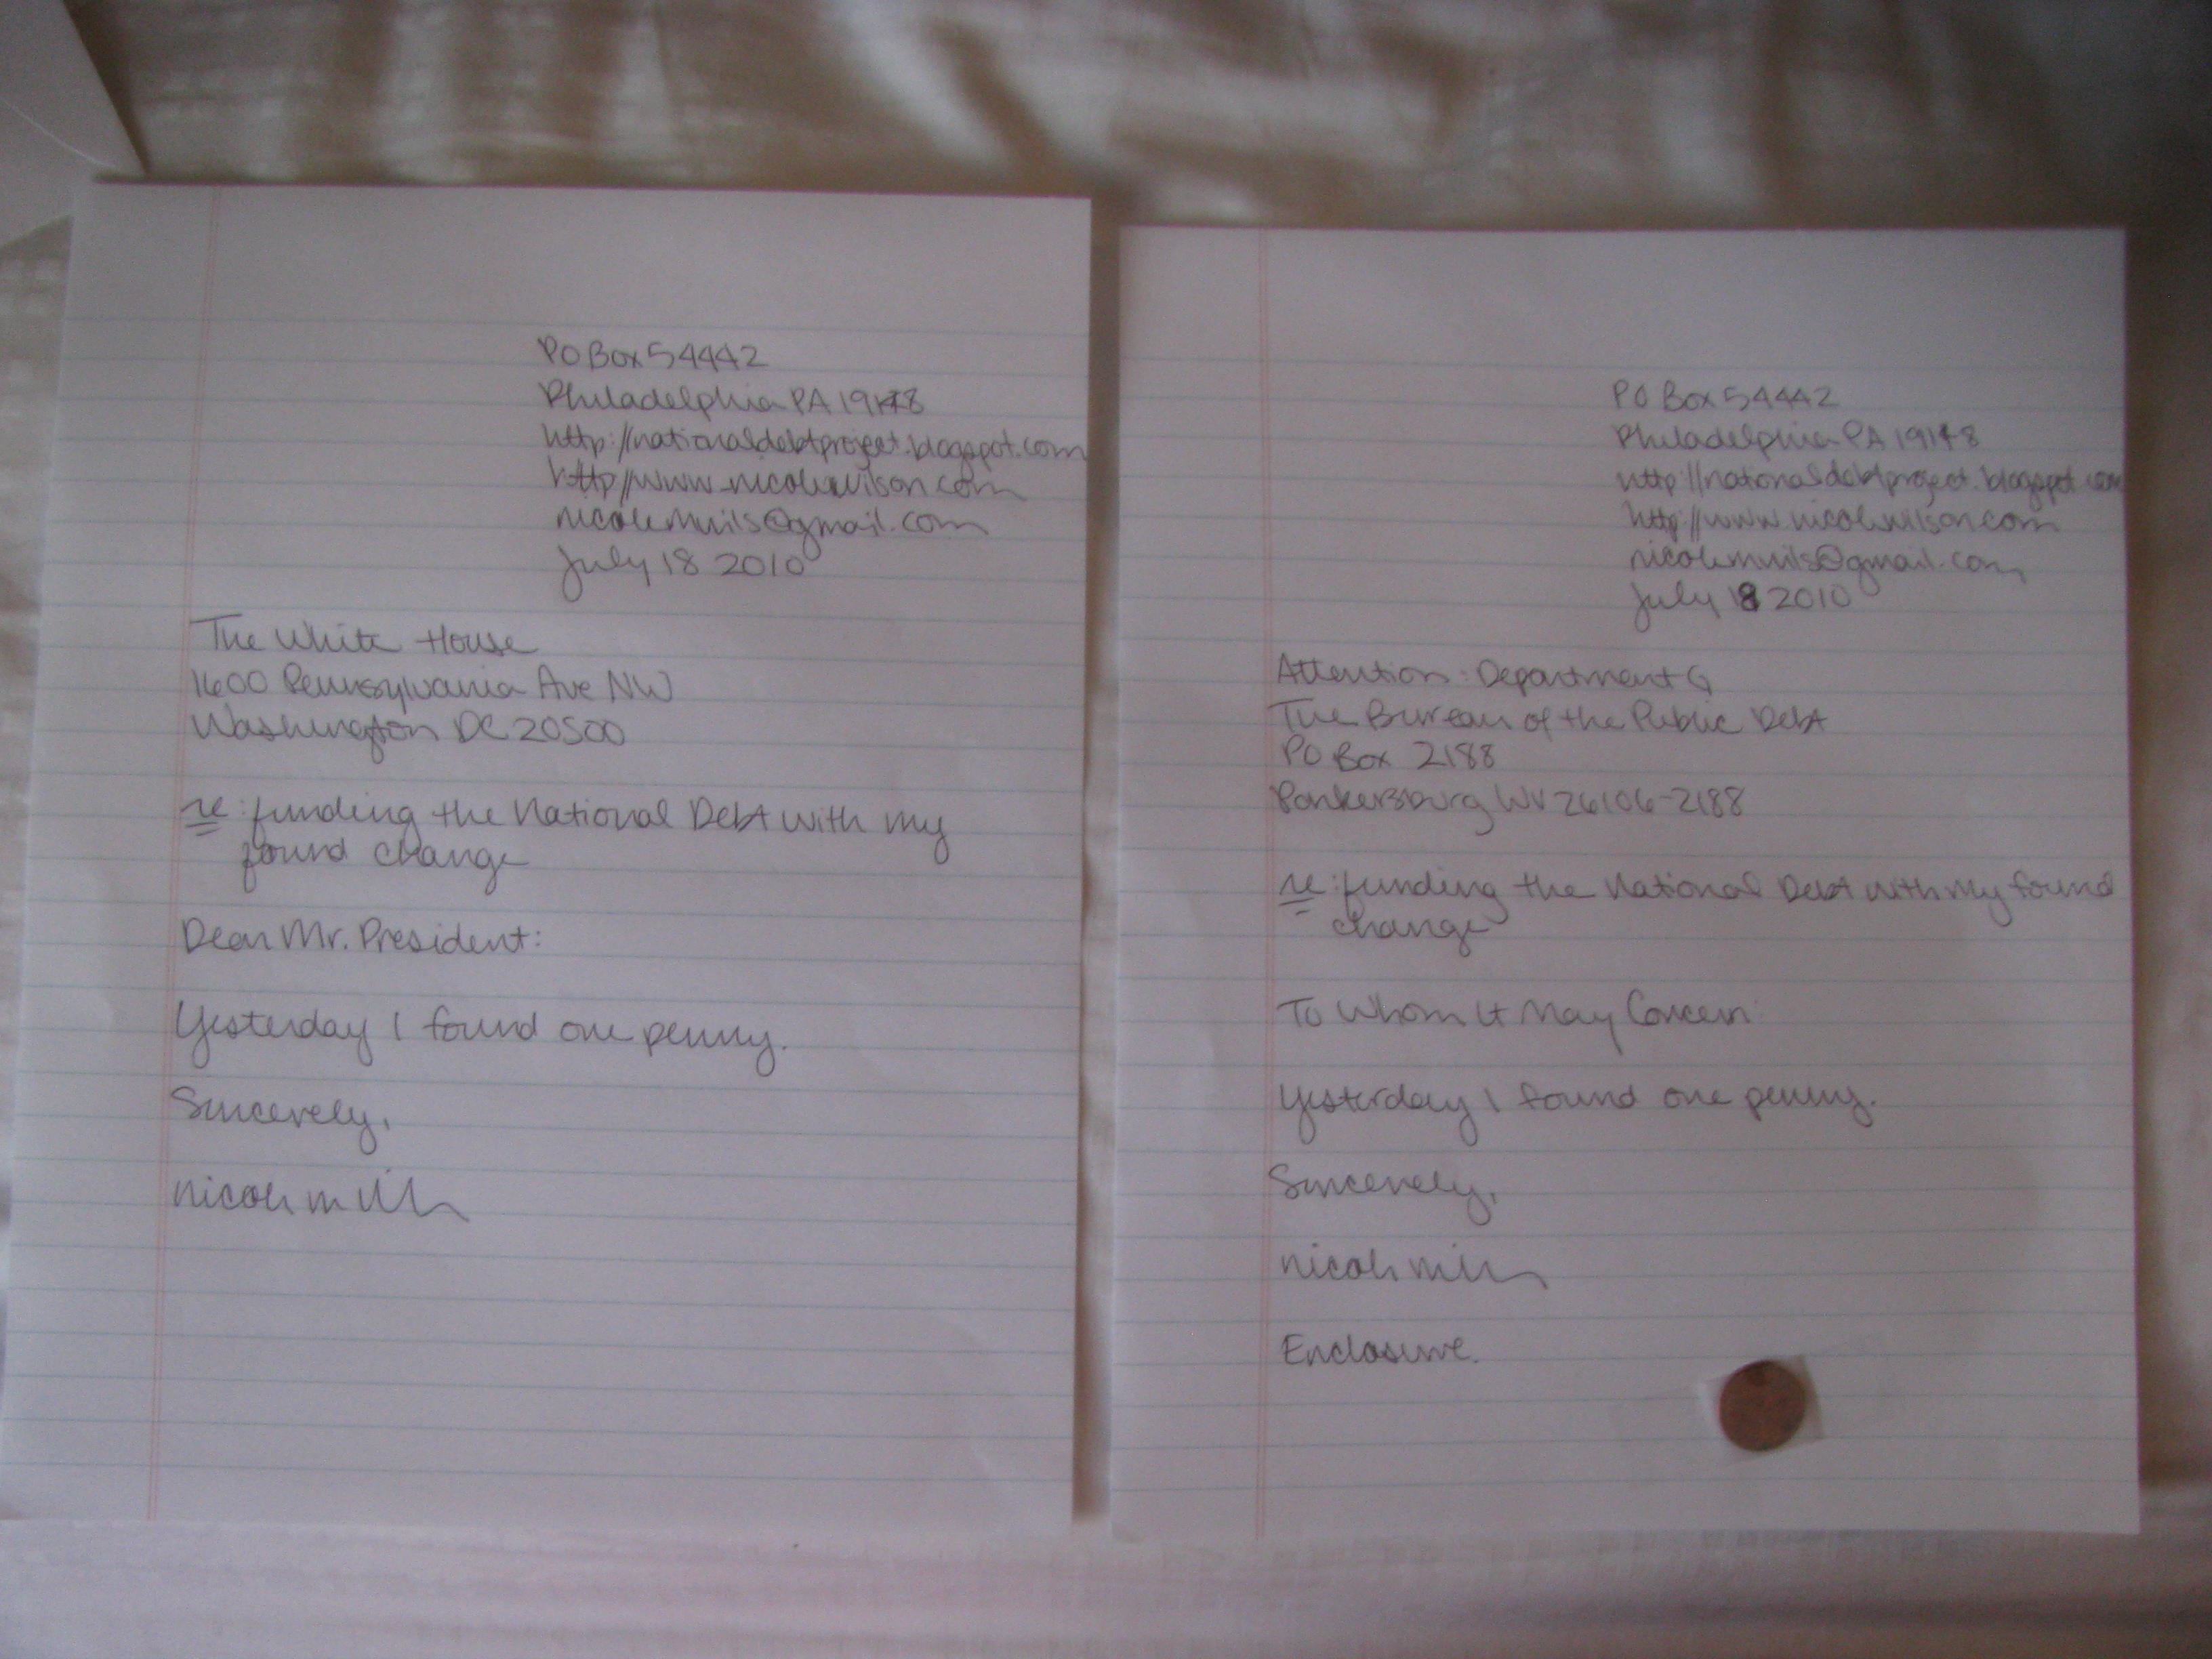 PO Box 54442
Philadelphia PA 19148
http://nationaldebtproject.blogspot.com
http://www.nicolewilson.com
nicolemwils@gmail.com
July 18 2010
The White House
1600 Pennsylvania Ave NW
Washington DC 20500
re: funding the National Debt with my
found change
Dear Mr. President:
Yesterday I found one penny.
Sincerely,
nicole m
PO Box 54442
Philadelphia PA 19148
http://nationaldebtproject.blogspot.com
http://www.nicolewilson.com
nicolemwils@gmail.com
July 18 2010
Attention: Department G
The Bureau of the Public Debt
PO Box 2188
Parkersburg WV 26106-2188
re: funding the National Debt with my found
change
To Whom It May Concern
Yesterday I found one penny.
Sincerely,
nicole
Enclosure.